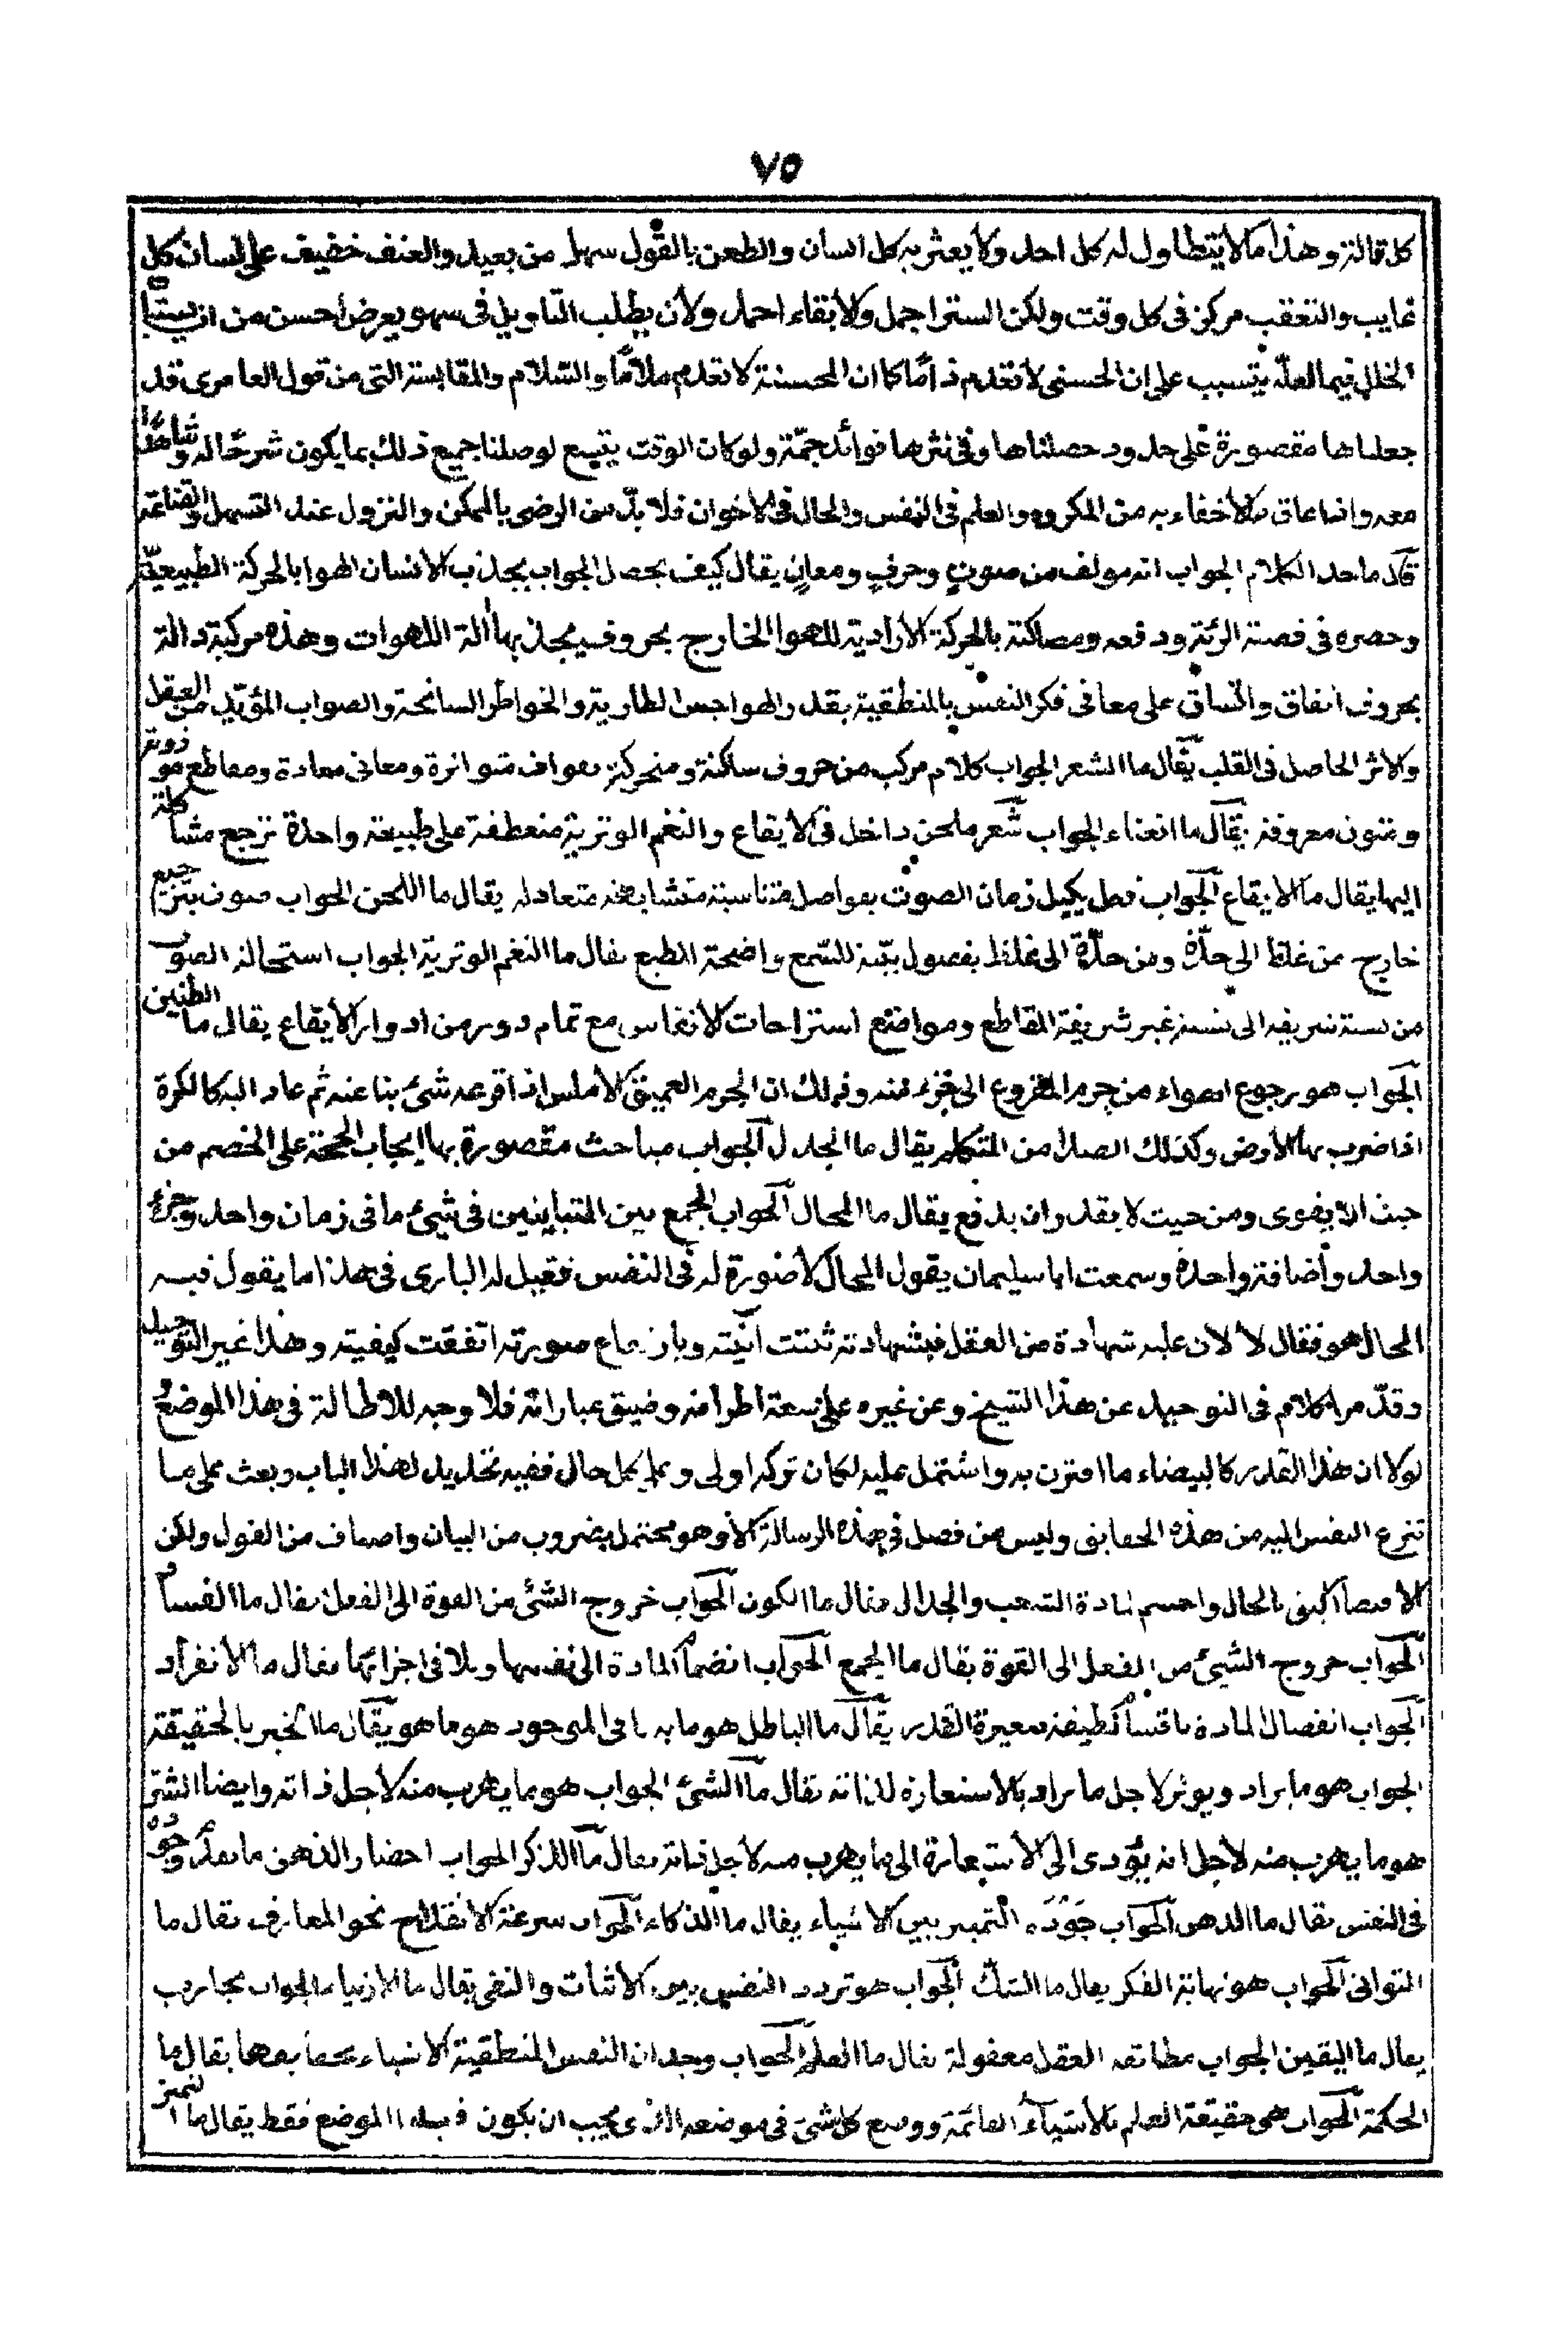 ٧٥
كل قالة وهذا ما لا يتطاول له كل احد ولا يعثر به كل انسان والطعن بالقول سهل من بعيد والعنف خفيف على لسان كل
غايب والتعقب مركز فى كل وقت ولكن الستر اجمل والابقاء احمد ولأن يطلب التاويل فى سهو يعرض احسن من ان
الخلل فيما لعله يتسبب على ان الحسنى لا تعدم ذامًّا كما ان المحسنة لا تعدم ملامًا والسّلام والمقابسة التى من قول العامرى قد
جعلناها مقصورة على حدود حصلناها وفى نثرها فوائد جمّة ولو كان الوقت يتسع لوصلنا جميع ذلك بما يكون شرحًا له وشاهدًا
معه وانما عاق ما لاخفاء به من المكروه والعلم فى النفس والحال فى الاخوان فلا بدّ من الرضى بالممكن والنزول عند التسهل والقناعة
ما حد الكلام الجواب انه مولف من صوت وحرف ومعان يقال كيف يحصل الجواب بجذب الانسان الهوا بالحركة الطبيعيّة
وحصره فى قصبة الرئة ودفعه ومصاكته بالحركة الأرادية للهوا الخارج بحروف يجذبها ألة اللهوات وهذه مركبة دالة
بحروف اتفاق واتّساق على معا فى فكر النفس بالمنطقية بقد والهواجس الطارية والخواطر السانحة والصواب المؤيّد من العقل
والاثر الحاصل فى القلب يقال ما الشعر الجواب كلام مركب من حروف ساكنة ومتحركة بقواف متواترة ومعانى معادة ومقاطع موزونة
ومتون معروفة يقال ما الغناء الجواب شعر ملحن داخل فى الايقاع والنغم الوترية منعطفة على طبيعة واحدة ترجع مشاكلة
اليها يقال ما الايقاع الجواب فعل يكيل زمان الصوت بفواصل متناسبة متشابهة متعادلة يقال ما اللحن الجواب صوت بترجيع
خارج من غلظ الى حدّة ومن حدّة الى غلظ بفصول بيّنة للسّمع واضحة للطبع يقال ما النغم الوترية الجواب استحالة الصوت
من نسبة شريفة الى نسبة غير شريفة المقاطع ومواضع استراحات الانفاس مع تمام دور من ادوار الايقاع يقال ما الطنين
الجواب هو رجوع الهواء من جرم المقروع الى جزء منه وذلك ان الجرم العميق الاملس اذا قرعه شئ نبا عنه ثم عاد اليه كالكرة
اذا ضرب بها الأرض وكذلك الصدا من المتكلم يقال ما الجدل الجواب مباحث مقصورة بها ايجاب الحجة على الخصم من
حيث لا يقوى ومن حيث لا يقدر ان يدفع يقال ما المحال الجواب الجمع بين المتباينين فى شئ ما فى زمان واحد وجزء
واحد وأضافة واحدة وسمعت ابا سليمان يقول المحال لا صورة له فى النفس فقيل له البارى فى هذا ما يقول فيه
المحال هو فقال لا لان عليه شهادة من العقل فبشهادته ثبتت انّيته وبارتفاع صورته اتفقت كيفيته وهذا غير التوحيد
وقد مر الكلام فى التوحيد عن هذا الشيخ وعن غيره على سعة اطرافه وضيق عباراته فلا وجه للاطالة فى هذا الموضع
لولا ان هذا القدر كالبيضاء ما اقترن به واشتمل عليه لكان تركه اولى وعلى كل حال ففيه تحديد لهذا الباب وبعث على ما
تنزع النفس اليه من هذه الحقايق وليس من فصل فى هذه الرسالة الا وهو محتمل بضروب من البيان واصناف من القول ولكن
الاقتصار اليق بالحال واحسم لمادة الشغب والجدال يقال ما الكون الجواب خروج الشئ من القوة الى الفعل يقال ما الفساد
الجواب خروج الشئ من الفعل الى القوة يقال ما الجمع الجواب انضمام المادة الى نفسها وتلاقى اجزائها يقال ما الانفراد
الجواب انفصال المادة باقسام لطيفة صغيرة القدر يقال ما الباطل هو ما به باقى الموجود هو ما هو يقال ما الخير بالحقيقة
الجواب هو ما يراد ويوثر لاجل ما يراد بالاستعارة لذاته يقال ما الشئ الجواب هو ما يهرب منه لاجل ذاته وايضا الشر
هو ما يهرب منه لاجل انه يؤدى الى الاستعارة الى ما يهرب منه لاجل ذاته يقال ما الذكر الجواب احضار الذهن ما تقدم وجوده
فى النفس يقال ما الذهن الجواب جَوْدة التمييز بين الاشياء يقال ما الذكاء الجواب سرعة الانقداح نحو المعارف يقال ما
التوانى الجواب هو نهاية الفكر يقال ما الشك الجواب هو تردد النفس بين الاثبات والنفى يقال ما الارتياء الجواب تجارب
يقال ما اليقين الجواب مطابقة العقل معقوله يقال ما العلم الجواب وجدان النفس المنطقية الاشياء بحقايقها يقال ما
الحكمة الجواب هى حقيقة العلم بالأشياء القائمة ووضع كل شئ فى موضعه الذى يجب ان يكون فيه الموضع فقط يقال ما التمييز